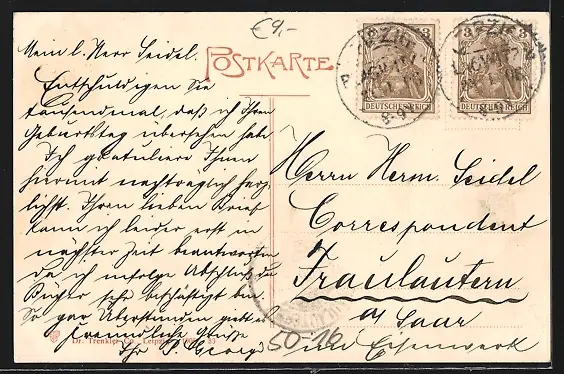 €9,-
POSTKARTE
DEUTSCHES REICH
DEUTSCHES REICH
Mein l. Herr Seidel.
Entschuldigen Sie
tausendmal, daß ich Ihren
Geburtstag übersehen habe
Ich gratuliere Ihnen
hiermit nachträglich herz-
lichst. Ihren lieben Brief
kann ich leider erst in
nächster Zeit beantworten
da ich infolge Abschluß der
Bücher sehr beschäftigt bin.
So gar Überstunden giebt es
freundliche Grüße
Ihr P. Georgi
Herrn Herm. Seidel
Correspondent
Fraulautern
a/Saar
Eisenwerk
50-16
Dr. Trenkler Co., Leipzig